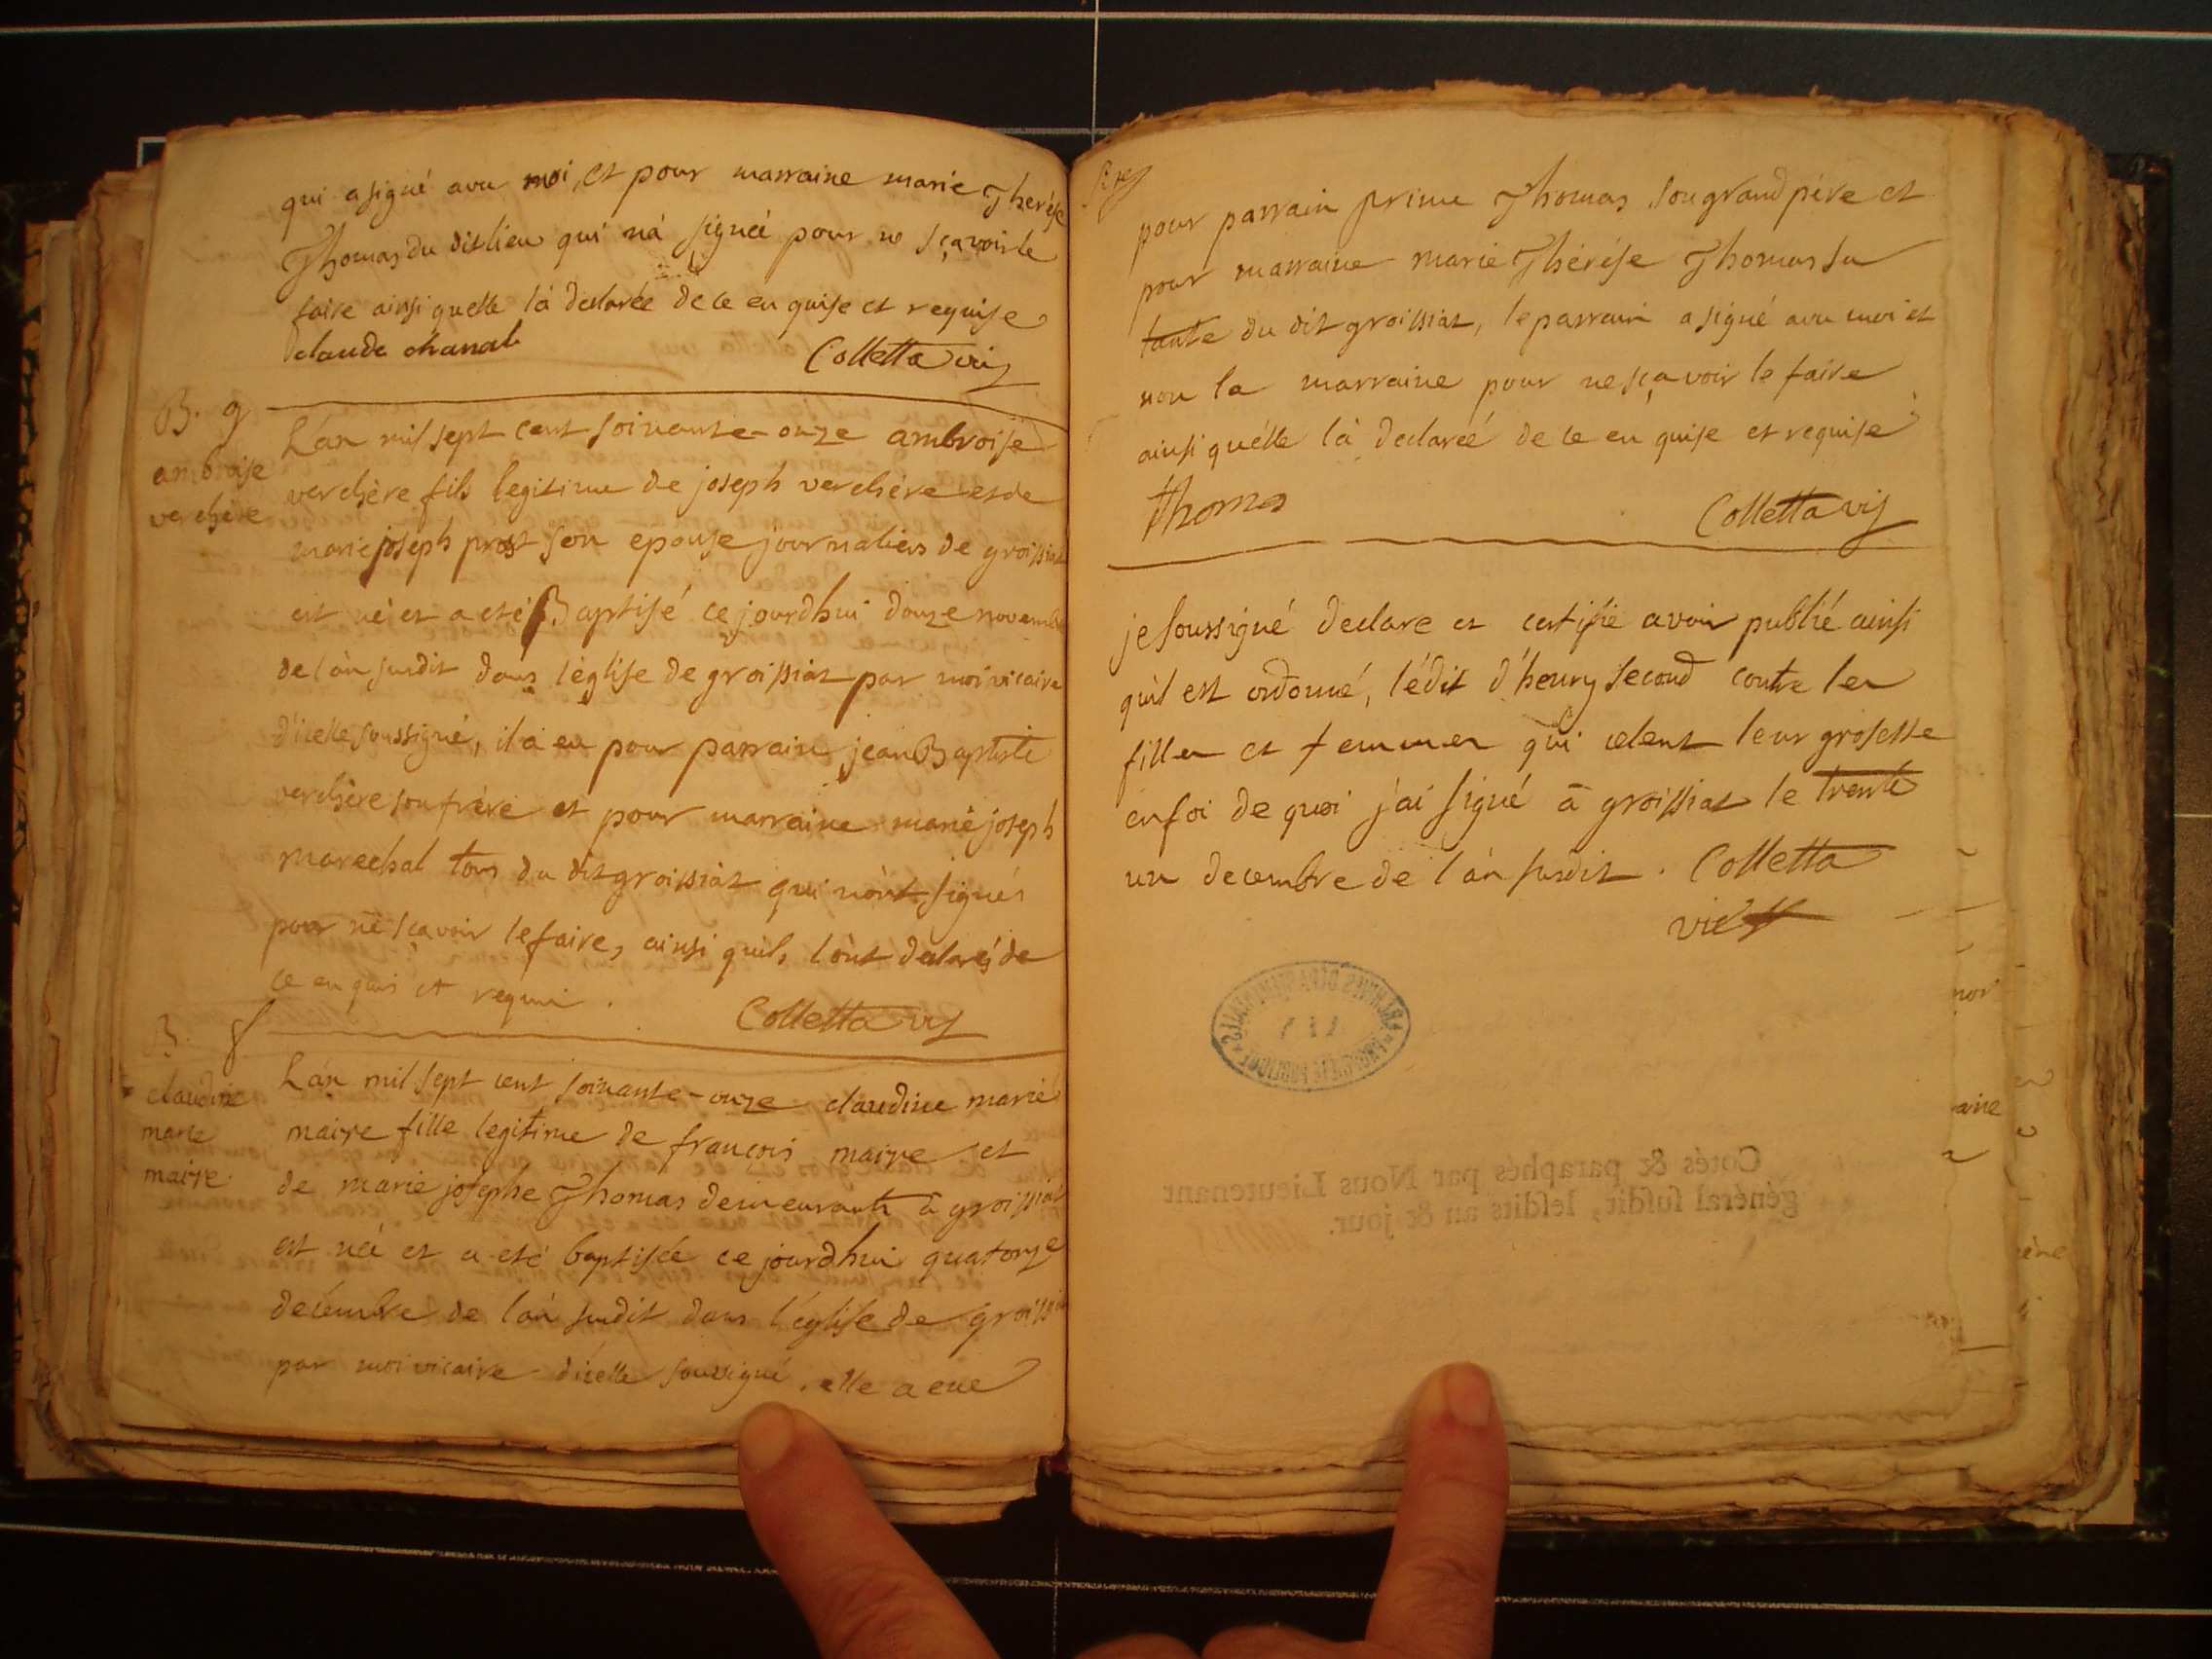 qui a signé avec moi, et pour marraine marie Therése
Thomas du dit lieu qui n'a signéé pour ne sçavoir le
faire ainsi quelle la declarée de ce en quise et requise
claude chanal
Colletta vic
B. g
ambroise
verchere
L'an mil sept cent soixante-onze ambroise
verchère fils legitime de joseph verchère et de
marie joseph prost son epouse journaliers de groissiat
est né et a eté Baptisé ce jourdhui douze novembre
de l'an susdit dans l'église de groissiat par moi vicaire
d'icelle soussigné, il a eu pour parrain jean Baptiste
verchère son frère et pour marraine marie joseph
marechal tous du dit groissiat qui n'ont signés
pour ne sçavoir le faire, ainsi quils l'ont declarés de
ce en quis et requis.
Colletta vic
B. f
claudine
marie
maire
L'an mil sept cent soixante-onze claudine marie
maire fille legitime de françois maire et
de marie josephe Thomas demeurants à groissiat
est néé et a eté baptisée ce jourdhui quatorze
décembre de l'an susdit dans l'église de groissiat
par moi vicaire d'icelle soussigné. elle a eue
pour parrain prime Thomas son grand père et
pour marraine marie Thérése Thomas sa
tante du dit groissiat, le parrain a signé avec moi et
non la marraine pour ne sçavoir le faire
ainsi quélle la declarée de ce en quise et requise
Thomas
Colletta vic
je soussigné declare et certifie avoir publié ainsi
qu'il est ordonné, l'édit d'henry second contre les
filles et femmes qui celent leur grosesse
en foi de quoi j'ai signé à groissiat le trente
un decembre de l'an susdit. Colletta
vic
Cotés & paraphés par Nous Lieutenant
général susdit, lesdits an & jour.